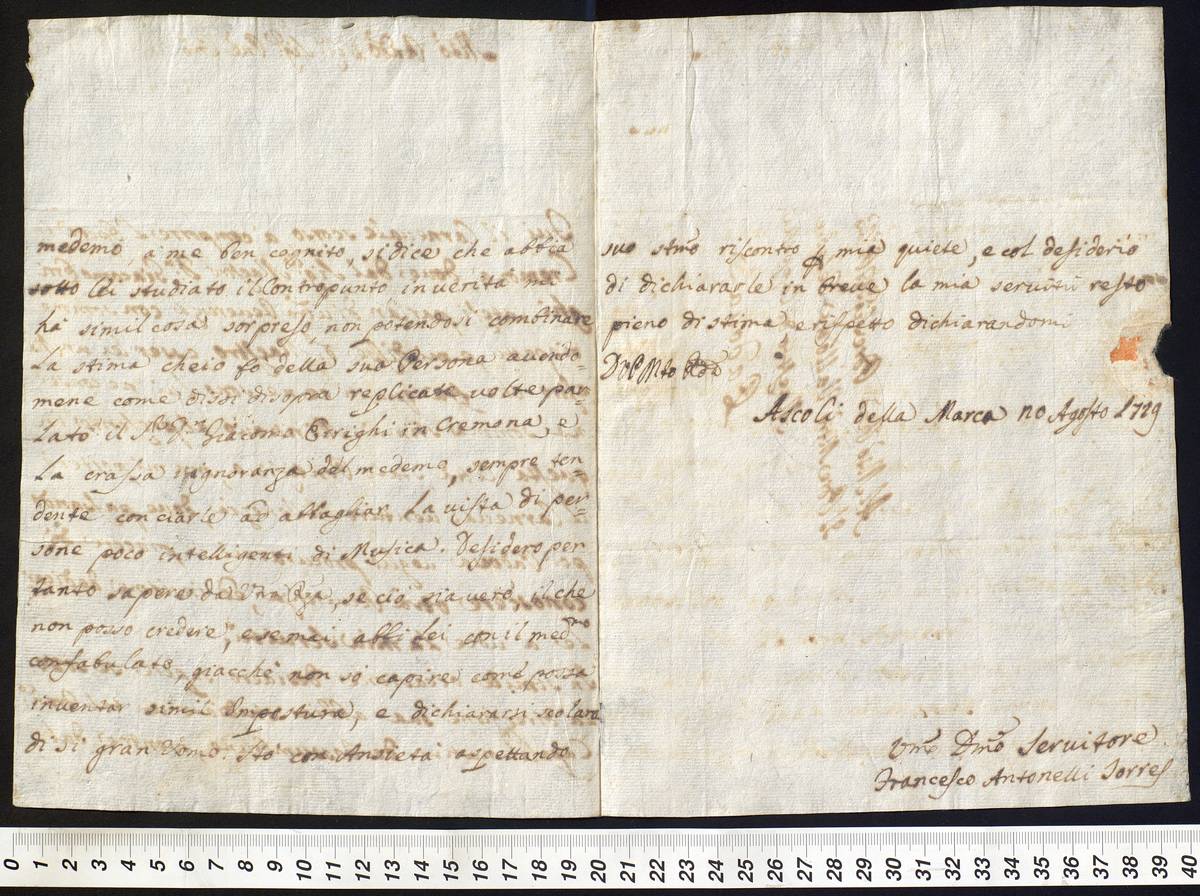 medemo, a me ben cognito, si dice che abbia
sotto lei studiato il Contropunto, in verità mi
hà simil cosa sorpreso, non potendosi combinare
la stima che io fo della sua Persona avendo-
mene come dissi disopra replicate volte par-
lato il Sr. Giacom Arrighi in Cremona, e
la crassa ignoranza del medemo, sempre ten-
dente con ciarle ad abbagliar la vista di per-
sone poco intelligenti di Musica. Desidero per
tanto sapere da Vra Rza, se ciò sia vero, il che
non posso credere, e se mai abbi lei con il medmo
confabulato, giacchè non so capire come possa
inventar simil Impostura, e dichiararsi scolaro
di si gran Uomo. Stò con Ansietà aspettando
suo stmo riscontro p mia quiete, e col desiderio
di dichiararle in breve la mia servitù resto
pieno di stima e rispetto dichiarandomi
D V P Mto Rda
Ascoli della Marca 20 Agosto 1729
Umo Dmo Servitore
Francesco Antonelli Torres
0 1 2 3 4 5 6 7 8 9 10 11 12 13 14 15 16 17 18 19 20 21 22 23 24 25 26 27 28 29 30 31 32 33 34 35 36 37 38 39 40